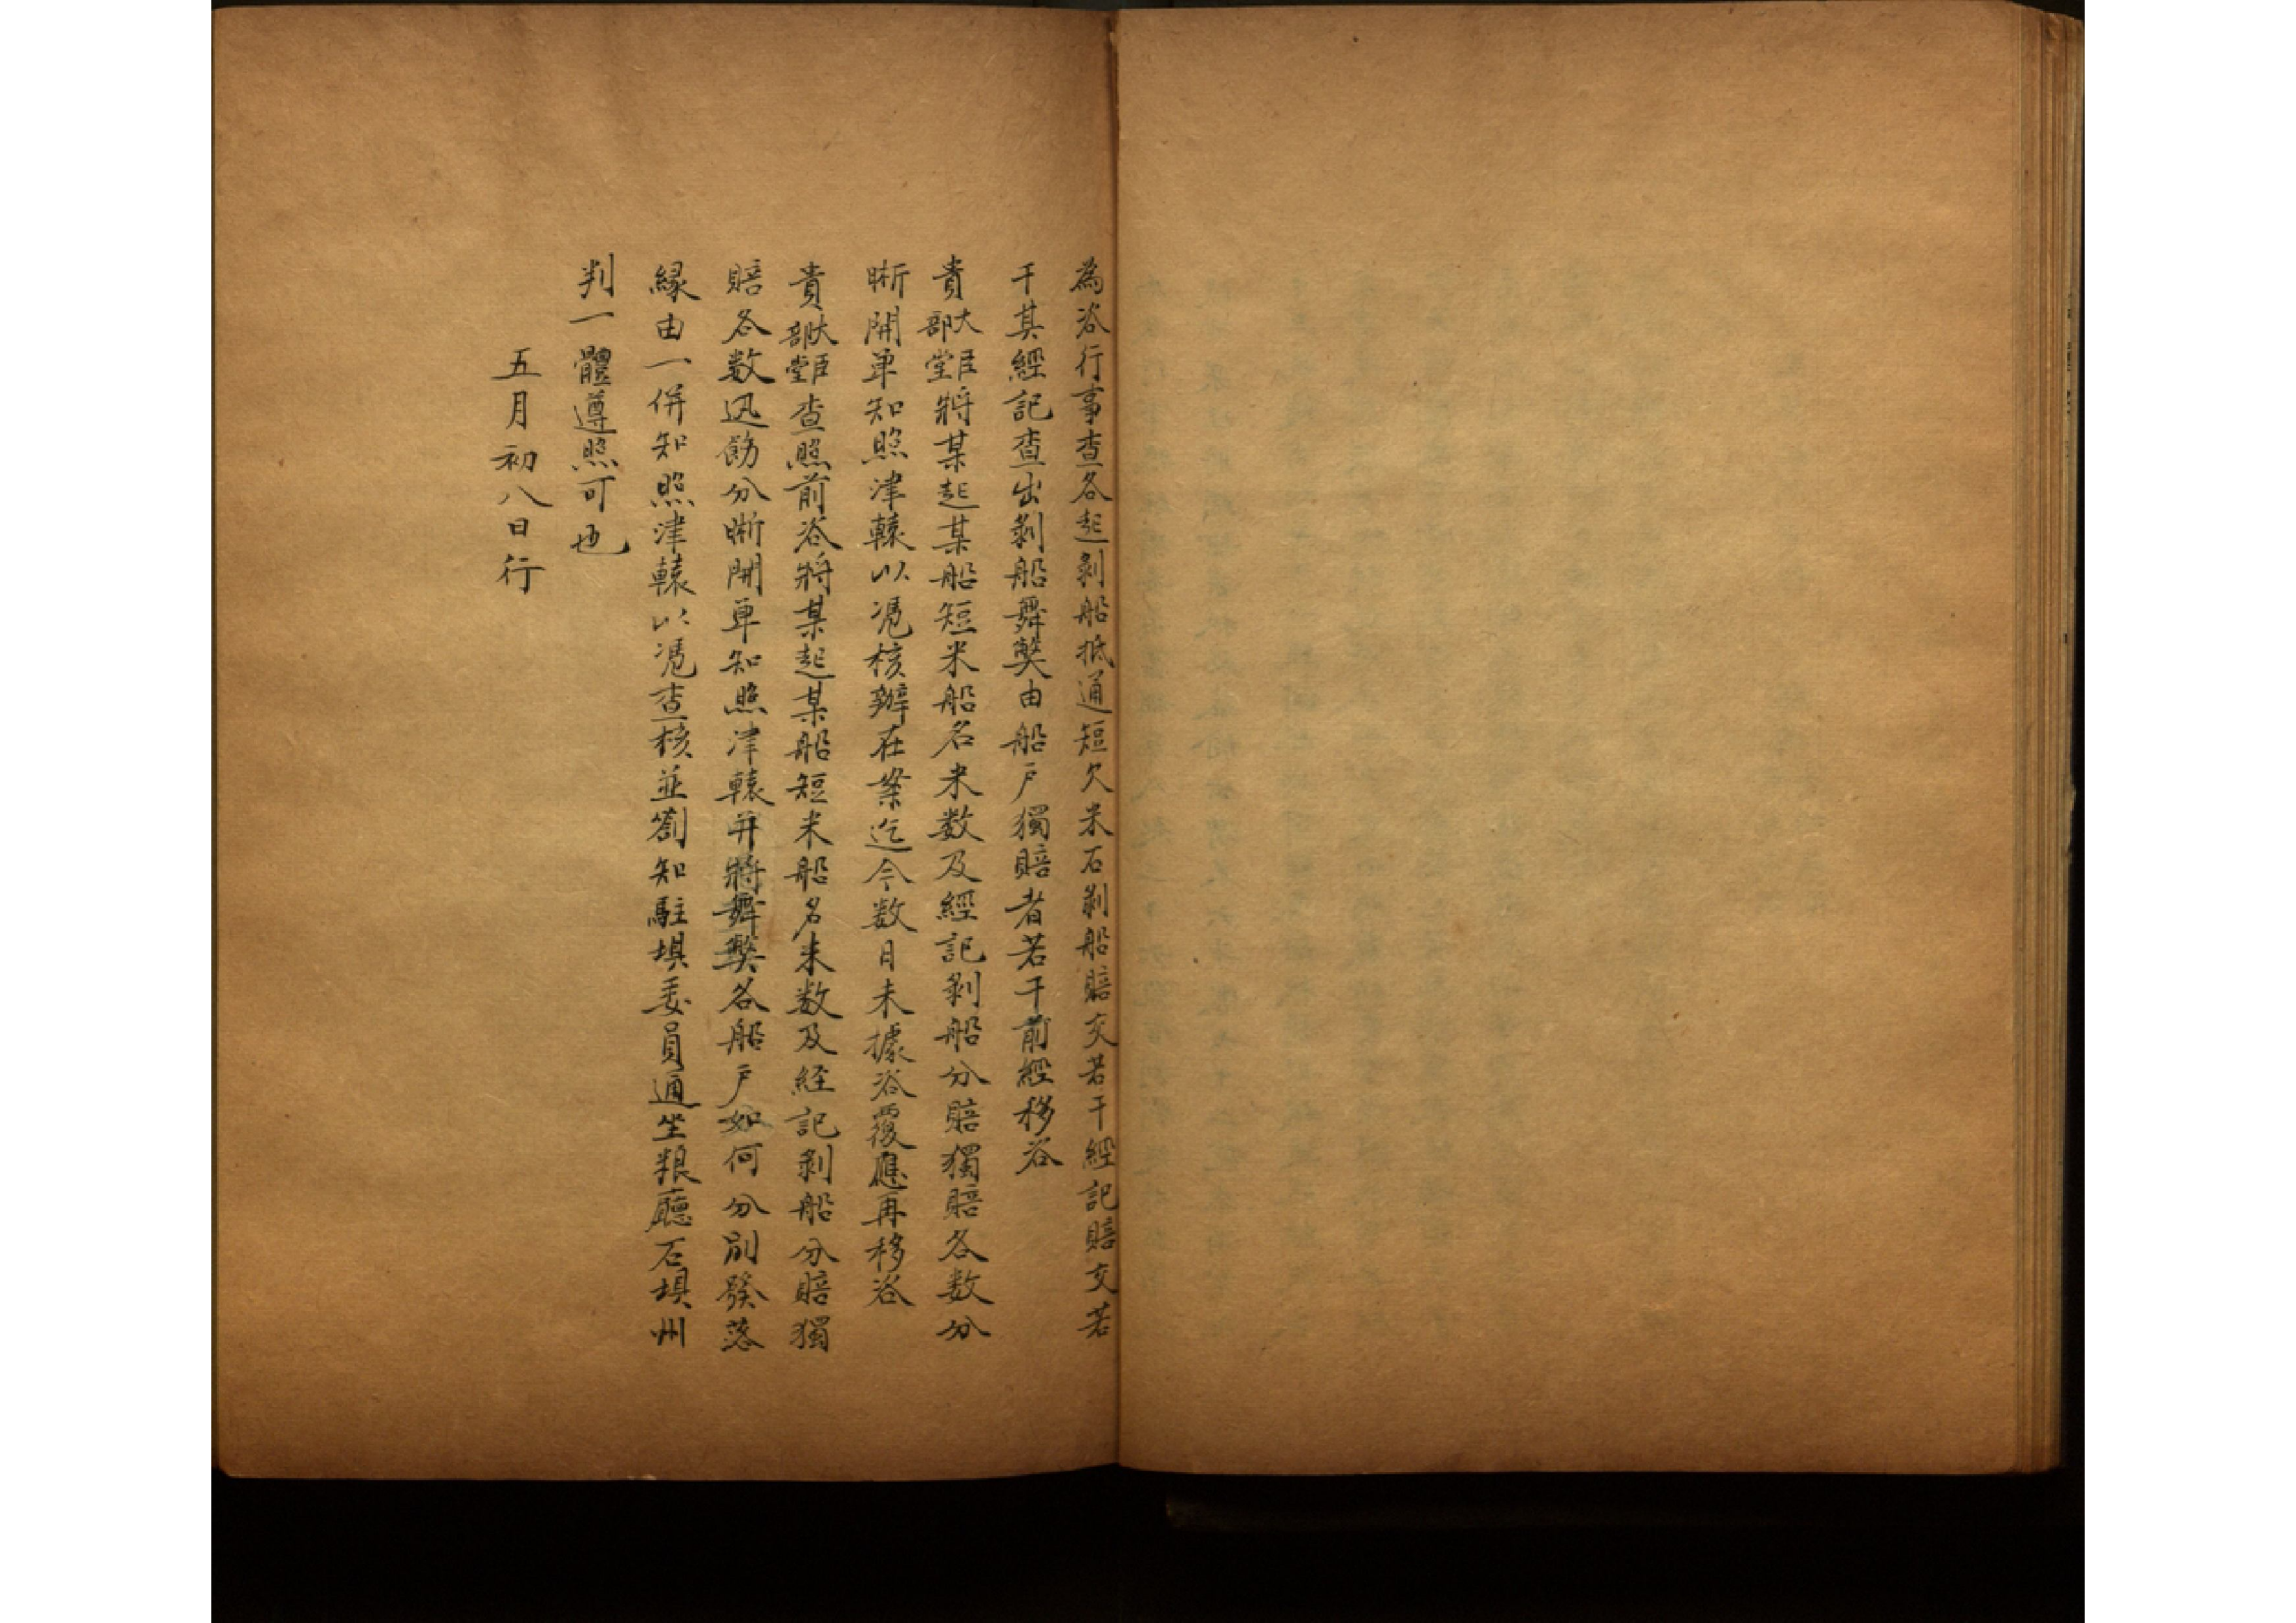 為咨行事查各起剥船抵通短欠米石剥船賠交若干經記賠交若
干其經記查出剥船舞獘由船戶獨賠者若干前經移咨
貴部堂大臣將某起某船短米船名米数及經記剥船分賠獨賠各数分
晰開单知照津轅以凴核辦在案迄今数月未據咨覆應再移咨
貴部堂大臣查照前咨將某起某船短米船名米数及経記剥船分賠獨
賠各数迅飭分晰開单知照津轅并將舞獘各船戶如何分別發落
緣由一併知照津轅以凴查核並劄知駐埧委員通坐粮廳石埧州
判一體遵照可也
五月初八日行